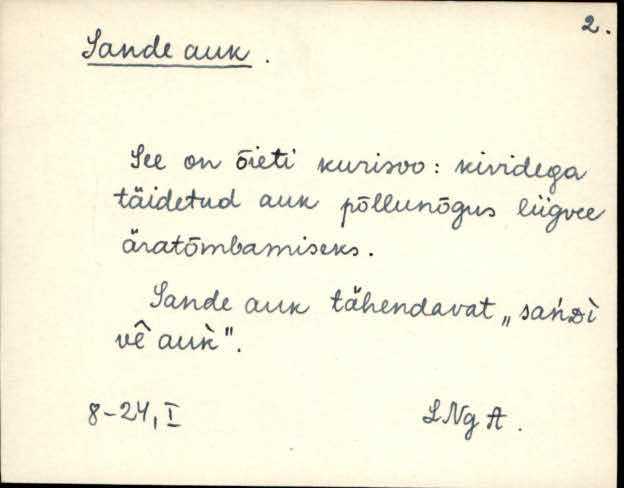 2.
Sande auk.
See on õieti kurisoo: kividega
täidetud auk põllunõgus liigvee
äratõmbamiseks.
Sande auk tähendavat „sańᴅì
vê̬ auk̀".
8-24, I
LNg A.